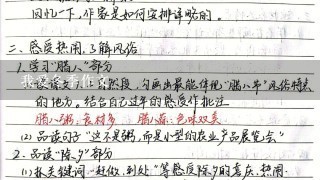 回忆一下，作家是如何安排详略的。
二、感受热闹，了解风俗
1.学习"腊八"部分
自然段，勾画出最能体现"腊八节"风俗特点
的地方。结合自己过年的感受作批注
腊八粥：食材多 腊八蒜：色味双美
(2)品读句子"这不是粥，而是小型的农业产品展览会"
2.品读"除夕"部分
(1)抓关键词"赶做、到处"等感受除夕的喜庆、热闹